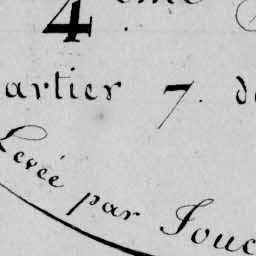 4.eme
artier 7. d
Levée par Jouc